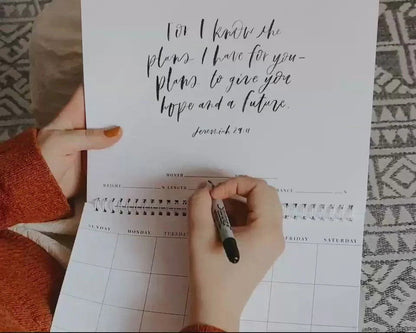 For I know the
plans I have for you-
plans to give you
hope and a future.
Jeremiah 29:11
MONTH
WEIGHT & LENGTH
SUNDAY MONDAY TUESDAY FRIDAY SATURDAY